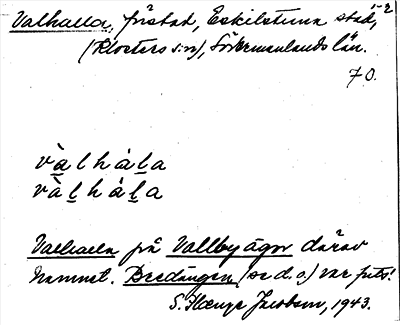 1-2
Valhalla, fristad, Eskilstuna stad,
(Klosters sn), Södermanlands län.
70.
vàlháḻa
vàḻháḻa
Valhalla på Vallby ägor därav
namnet. Bredängen (se d.o.) var
S. Jacobson, 1943.